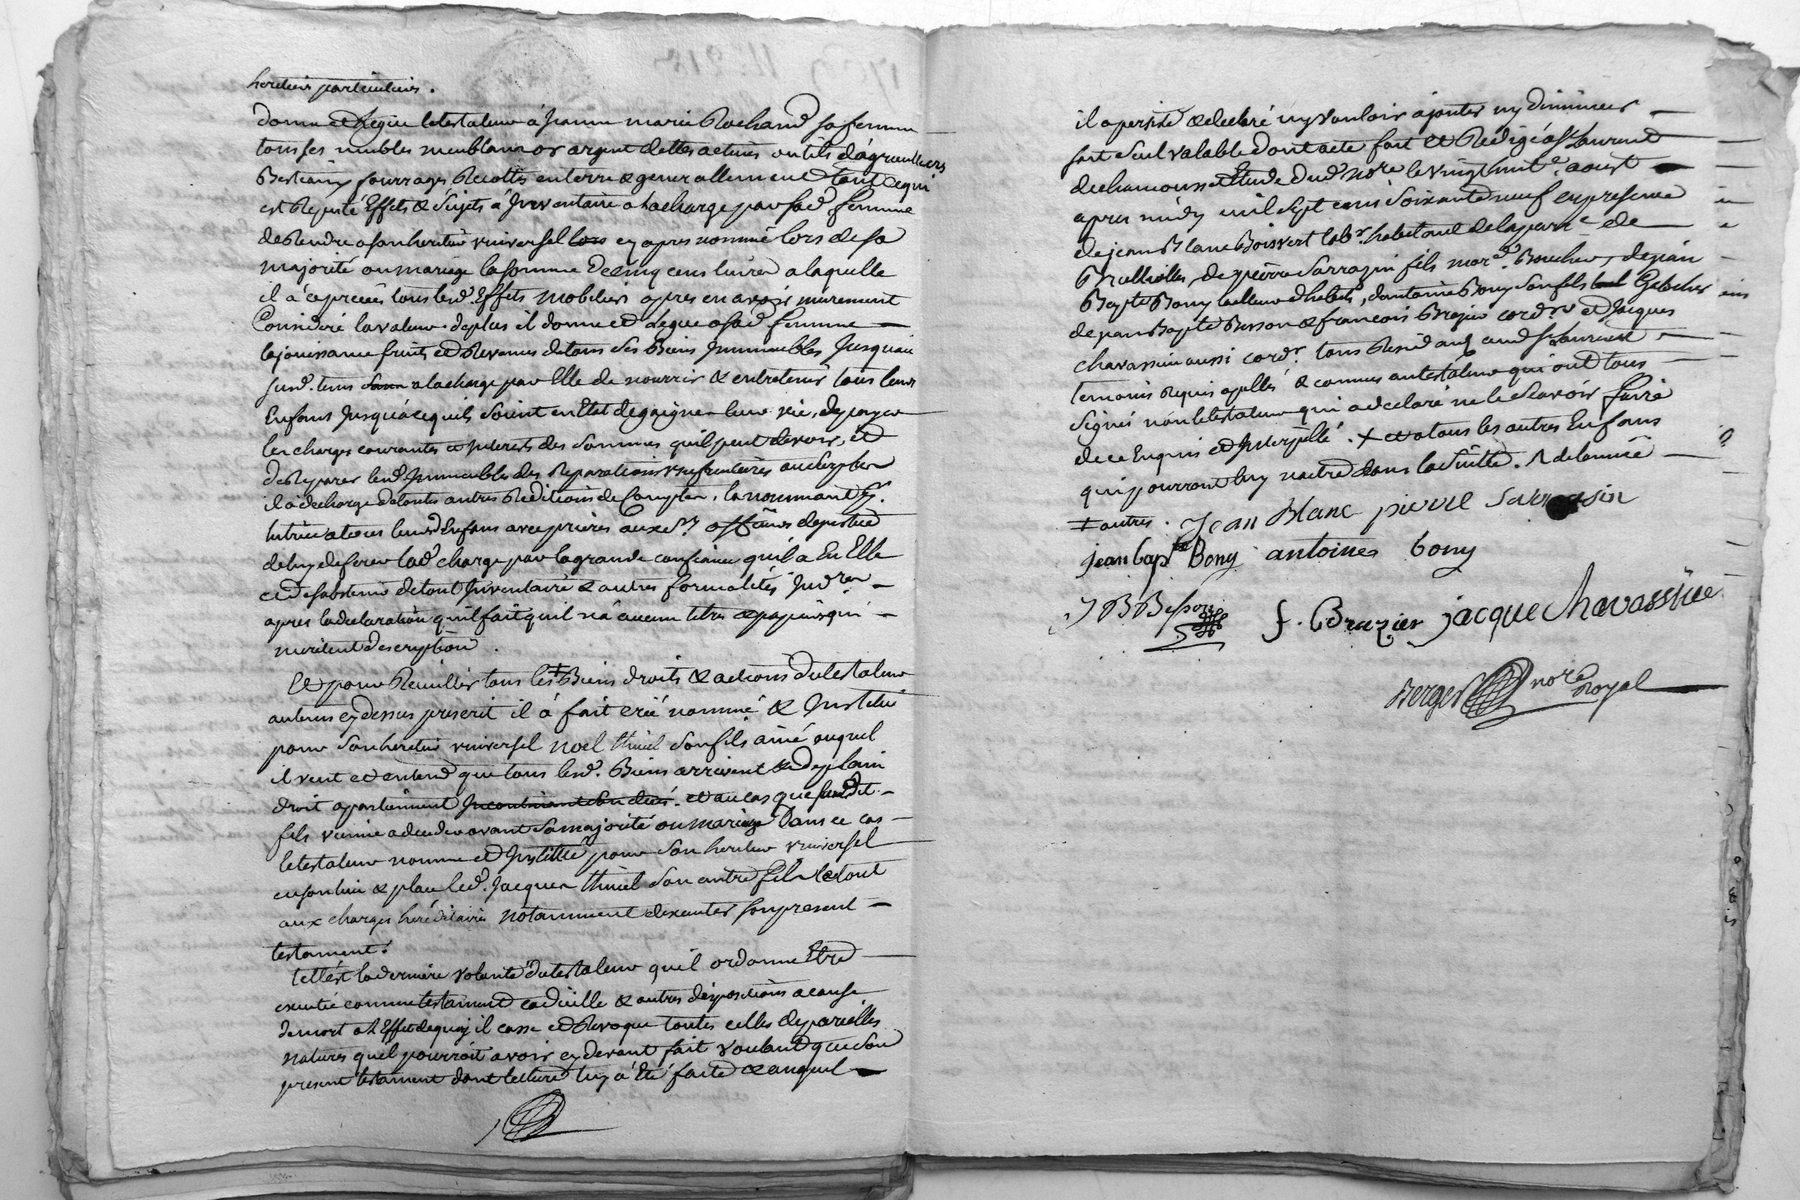 heritiers particuliers.
donne et legue le testateur à Jeanne marie Rochand sa femme
tous ses meubles meublans or argent dettes actives outils d'agriculture
Bestiaux fourrages Recoltes en terre & generallement tout ce qui
est Reputé Effets & Sujets à Inventaire a la charge par sad. femme
de Rendre a son heritier universel cy apres nommé lors de sa
majorité ou mariage la somme de cinq cens livres a laquelle
il à apretié tous lesd. Effets mobiliers apres en avoir murement
Consideré la valeur. de plus il donne et legue a sad. femme
la jouissance fruits et Revenus de tous ses Biens Immeubles Jusqu'au
susd. tems a la charge par Elle de nourrir & entretenir tous leurs
Enfans Jusqu'à ce qu'ils soient en Etat de gaigner leur vie, de payer
les charges courantes et Interets des sommes qu'il peut devoir, et
de Reparer lesd. Immeubles des Reparations usufruitieres au surplus
il la decharge de toute autres Reditions de Comptes, la nommant
tutrice de leursd. Enfans avec prieres aux srs officiers de justice
de luy deferer lad. charge par la grande confiance qu'il a En Elle
et de s'abstenir de tout Inventaire & autres formalités Judres
apres la declaration qu'il fait qu'il n'a aucun titres & papiers qui
meritent description.
Et pour Recuillir tous les ‡ Biens droits & actions du testateur
au par cy dessus prescrit il à fait créé nommé & Institué
pour son heritier universel noel thiviel son fils ainé auquel
il veut et entend que tous lesd. Biens arrivent & de plain
droit apartiennent et au cas que sondit
fils vienne a deceder avant sa majorité ou mariage Dans ce cas
le testateur nomme et Institue pour son heritier universel
en son lieu & place led. Jacques thiviel son autre fils le tout
aux charges hereditaires notamment d'executer son present
testament.
telle est la derniere volonté du testateur qu'il ordonne Etre
executée comme testament codicille & autres dispositions a cause
de mort a l'Effet de quoy il casse et Revoque toutes celles de pareilles
natures qu'il pourroit avoir cy devant fait voulant que son
present testament dont lecture luy a été faite & auquel
il a persisté & declaré n'y vouloir ajouter ny diminuer
soit seul valable dont acte fait et Redigé a St Laurent
de chamousset Etude dud. nore le vingt huite. aoust
apres midy mil sept cens soixante neuf en presence
de jean Blanc Boisvert labr. habitant de la parr.e de
Brullioles, de pierre Sarrazin fils mard. Boucher, de jean
Bapte Bony tailleur d'habits, d'antoine Bony son fils
de jean Bapte Besson & francois Brazier cordrs et Jacques
chavassieu aussi cordr. tous Residans aud. St Laurent
temoins Requis apellés & connus au testateur qui ont tous
signés non le testateur qui a declaré ne le scavoir faire
de ce Enquis et Interpellé. + et a tous les autres Enfans
qui pourront luy naitre dans la suitte.
‡ autres. Jean Blanc pierre Sarrasin
jean bapte Bony antoines bony
J B Besson f. Brazier jacque Chavassiue
Berger nore Royal